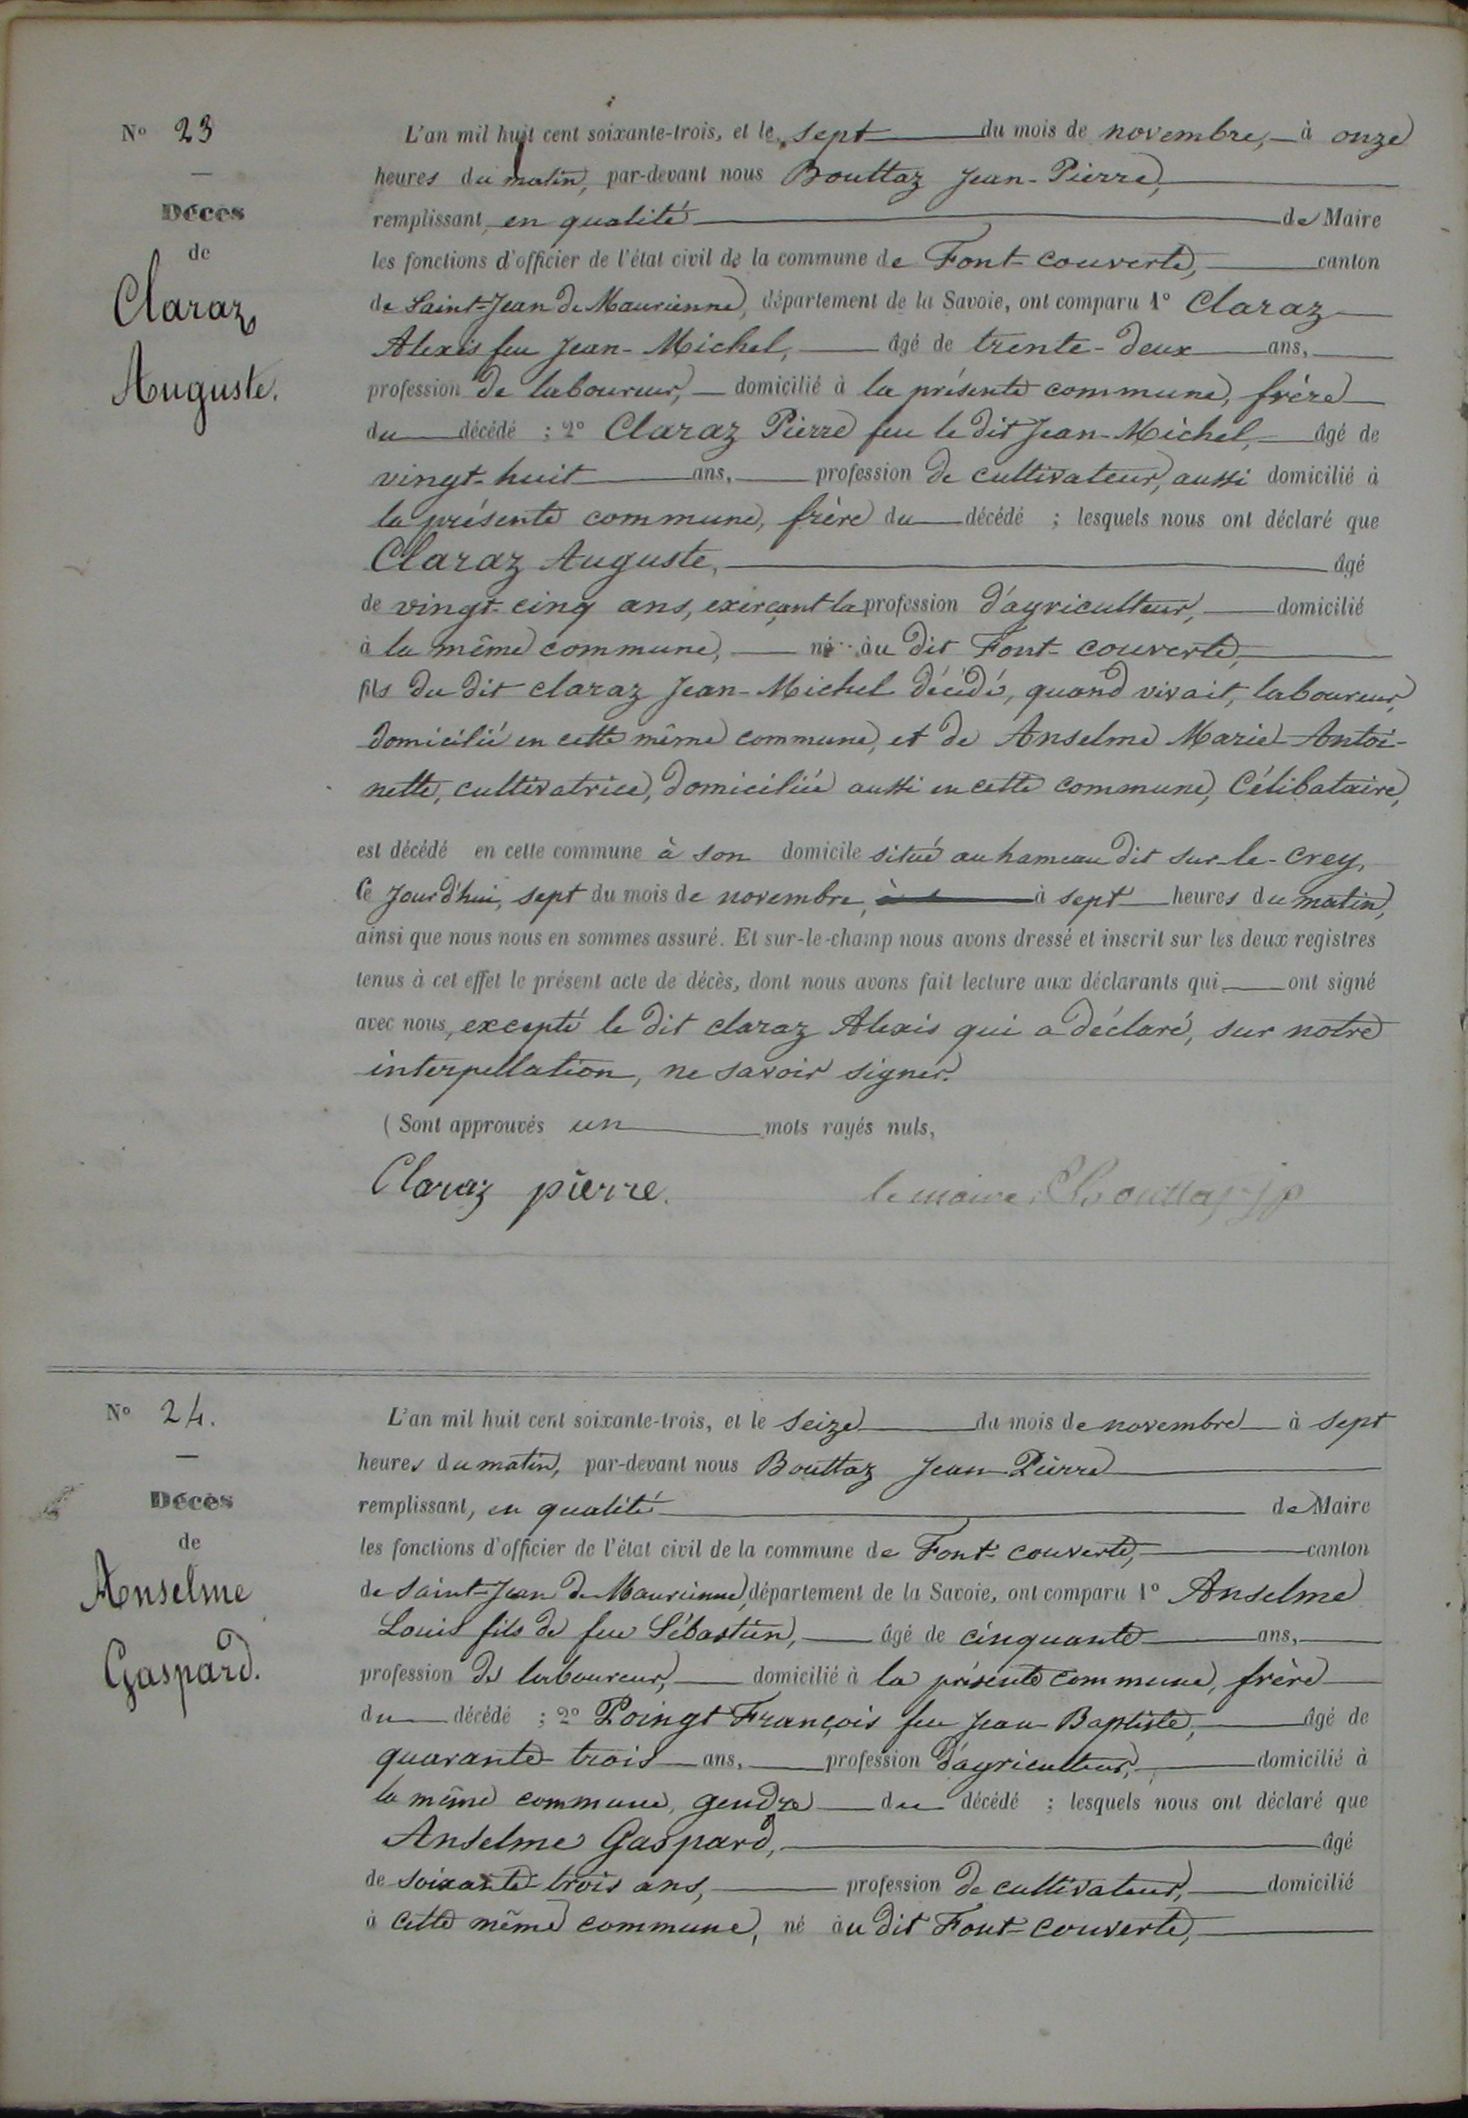 N° 23
Décès
de
Claraz
Auguste.
L'an mil huit cent soixante-trois, et le sept du mois de novembre, à onze
heures du matin, par-devant nous Bouttaz Jean-Pierre,
remplissant, en qualité de Maire
les fonctions d'officier de l'état civil de la commune de Font-couverte, canton
de Saint-Jean de Maurienne, département de la Savoie, ont comparu 1° Claraz
Alexis feu Jean-Michel, âgé de trente-deux ans,
profession de laboureur, domicilié à la présente commune, frère
du décédé ; 2° Claraz Pierre feu le dit Jean-Michel, âgé de
vingt-huit ans, profession de cultivateur, aussi domicilié à
la présente commune, frère du décédé ; lesquels nous ont déclaré que
Claraz Auguste, âgé
de vingt-cinq ans, exerçant la profession d'agriculteur, domicilié
à la même commune, né àu dit Font-couverte,
fils du dit claraz Jean-Michel décédé, quand vivait, laboureur,
domicilié en cette même commune, et de Anselme Marie-Antoi-
nette, cultivatrice, domiciliée aussi en cette commune, Célibataire,
est décédé en cette commune à son domicile situé au hameau dit sur-le-Crey,
Ce Jourd'hui, sept du mois de novembre, à sept heures du matin,
ainsi que nous nous en sommes assuré. Et sur-le-champ nous avons dressé et inscrit sur les deux registres
tenus à cet effet le présent acte de décès, dont nous avons fait lecture aux déclarants qui ont signé
avec nous, excepté le dit claraz Alexis qui a déclaré, sur notre
interpellation, ne savoir signer.
(Sont approuvés un mots rayés nuls,
Claraz pierre. le maire, Bouttaz jp
N° 24.
Décès
de
Anselme
Gaspard.
L'an mil huit cent soixante-trois, et le seize du mois de novembre à sept
heures du matin, par-devant nous Bouttaz Jean-Pierre
remplissant, en qualité de Maire
les fonctions d'officier de l'état civil de la commune de Font-couverte, canton
de Saint-Jean de Maurienne, département de la Savoie, ont comparu 1° Anselme
Louis fils de feu Sébastien, âgé de cinquante ans,
profession de laboureur, domicilié à la présente commune, frère
du décédé ; 2° Poingt François feu Jean-Baptiste, âgé de
quarante-trois ans, profession d'agriculteur, domicilié à
la même commune, gendre du décédé ; lesquels nous ont déclaré que
Anselme Gaspard, âgé
de soixante-trois ans, profession de cultivateur, domicilié
à cette même commune, né àu dit Font-couverte,